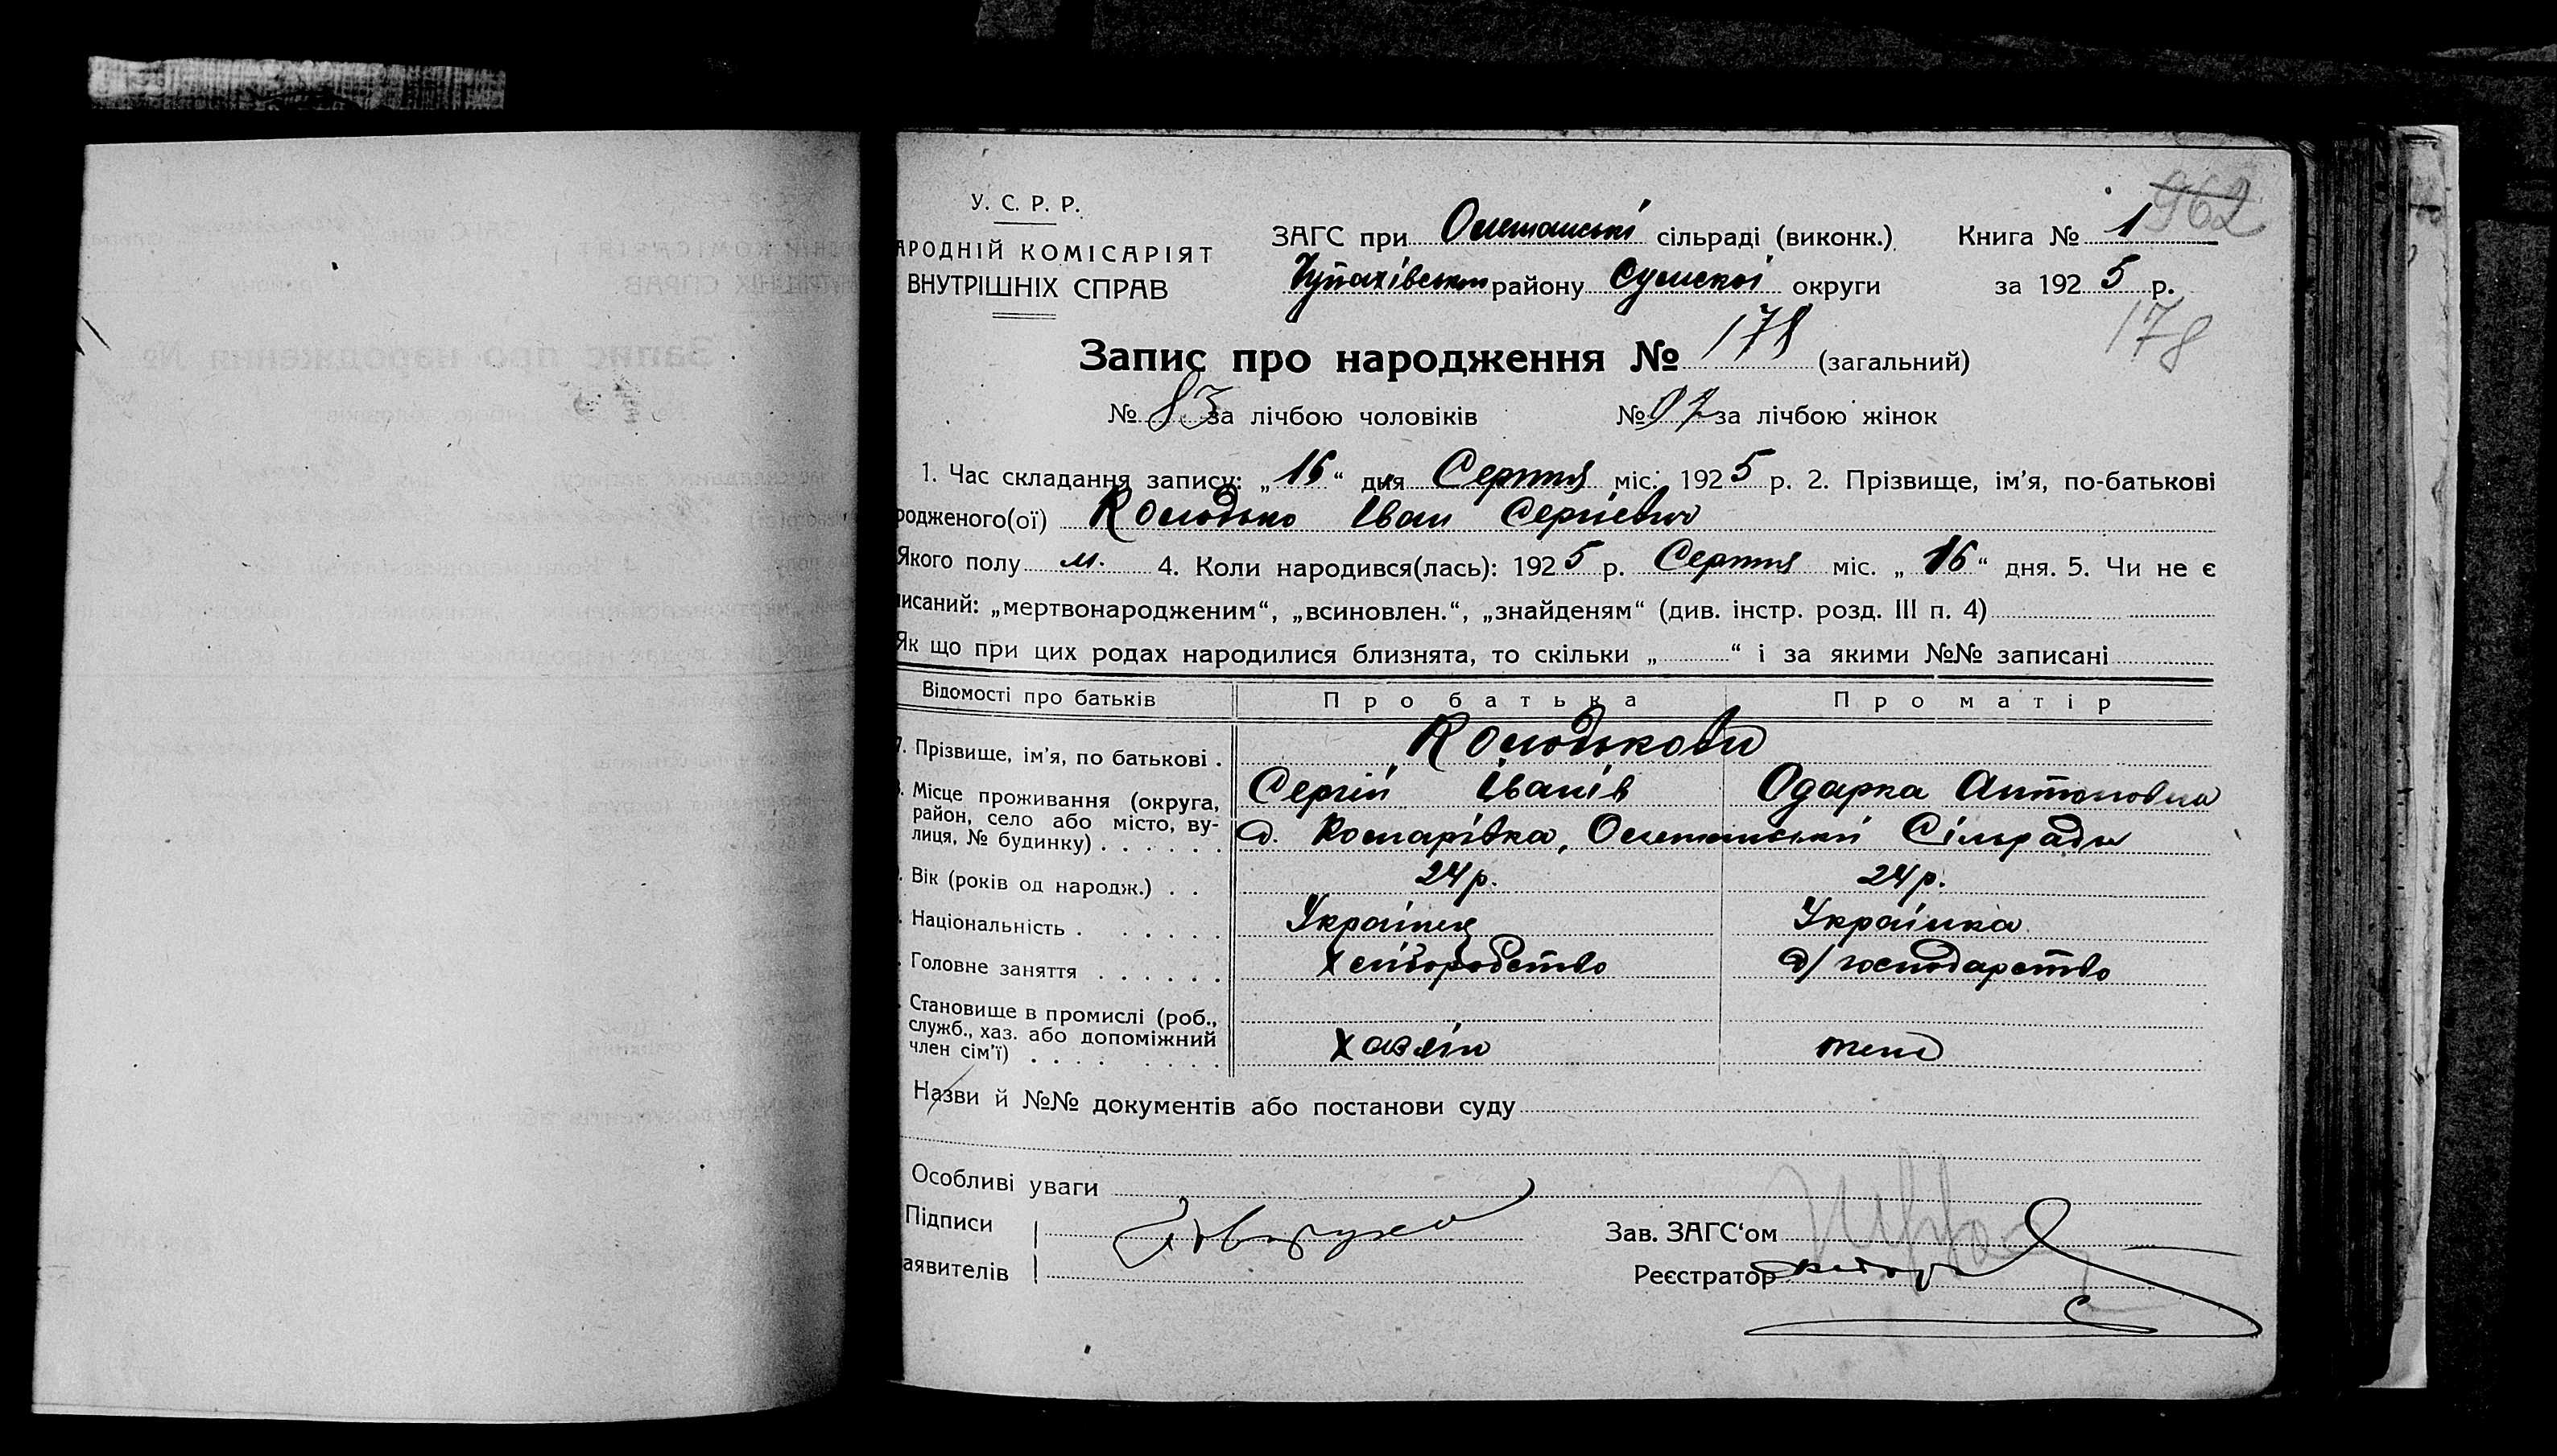 962
У. С. Р. Р.
АРОДНІЙ КОМІСАРІЯТ
ВНУТРІШНІХ СПРАВ
ЗАГС при Олешанські сільраді (виконк.) Книга № 1
Чупахівського району Сумскої округи за 1925 р.
178
Запис про народження № 178 (загальний)
№ 83 за лічбою чоловіків № за лічбою жінок
1. Час складання запису: „16“ дня Серпня міс. 1925 р. 2. Прізвище, ім’я, по-батькові
родженого(ої) Колодько Іван Сергієвич
Якого полу м. 4. Коли народився(лась): 1925 р. Серпня міс. „16“ дня. 5. Чи не є
писаний: „мертвонародженим“, „всиновлен.“, „знайденям“ (див. інстр. розд. III п. 4)
Як що при цих родах народилися близнята, то скільки „ “ і за якими №№ записані
Відомості про батьків Про батька Про матір
7. Прізвище, ім’я, по батькові . Колодькови
Сергій Іванів Одарка Антоновна
. Місце проживання (округа, район, село або місто, вулиця, № будинку) . . . . . . Комарівка, Олешанської Сільради
. Вік (років од народж.) . . 24 р. 24 р.
. Національність . . . . . . Українец Українка
. Головне заняття . . . . . . Хліборобство д/господарство
. Становище в промислі (роб.,
служб., хаз. або допоміжний
член сім’ї) . . . . . . . . Хазяїн жена
Назви й №№ документів або постанови суду
Особливі уваги
Підписи
аявителів
Зав. ЗАГС‘ом
Реєстратор